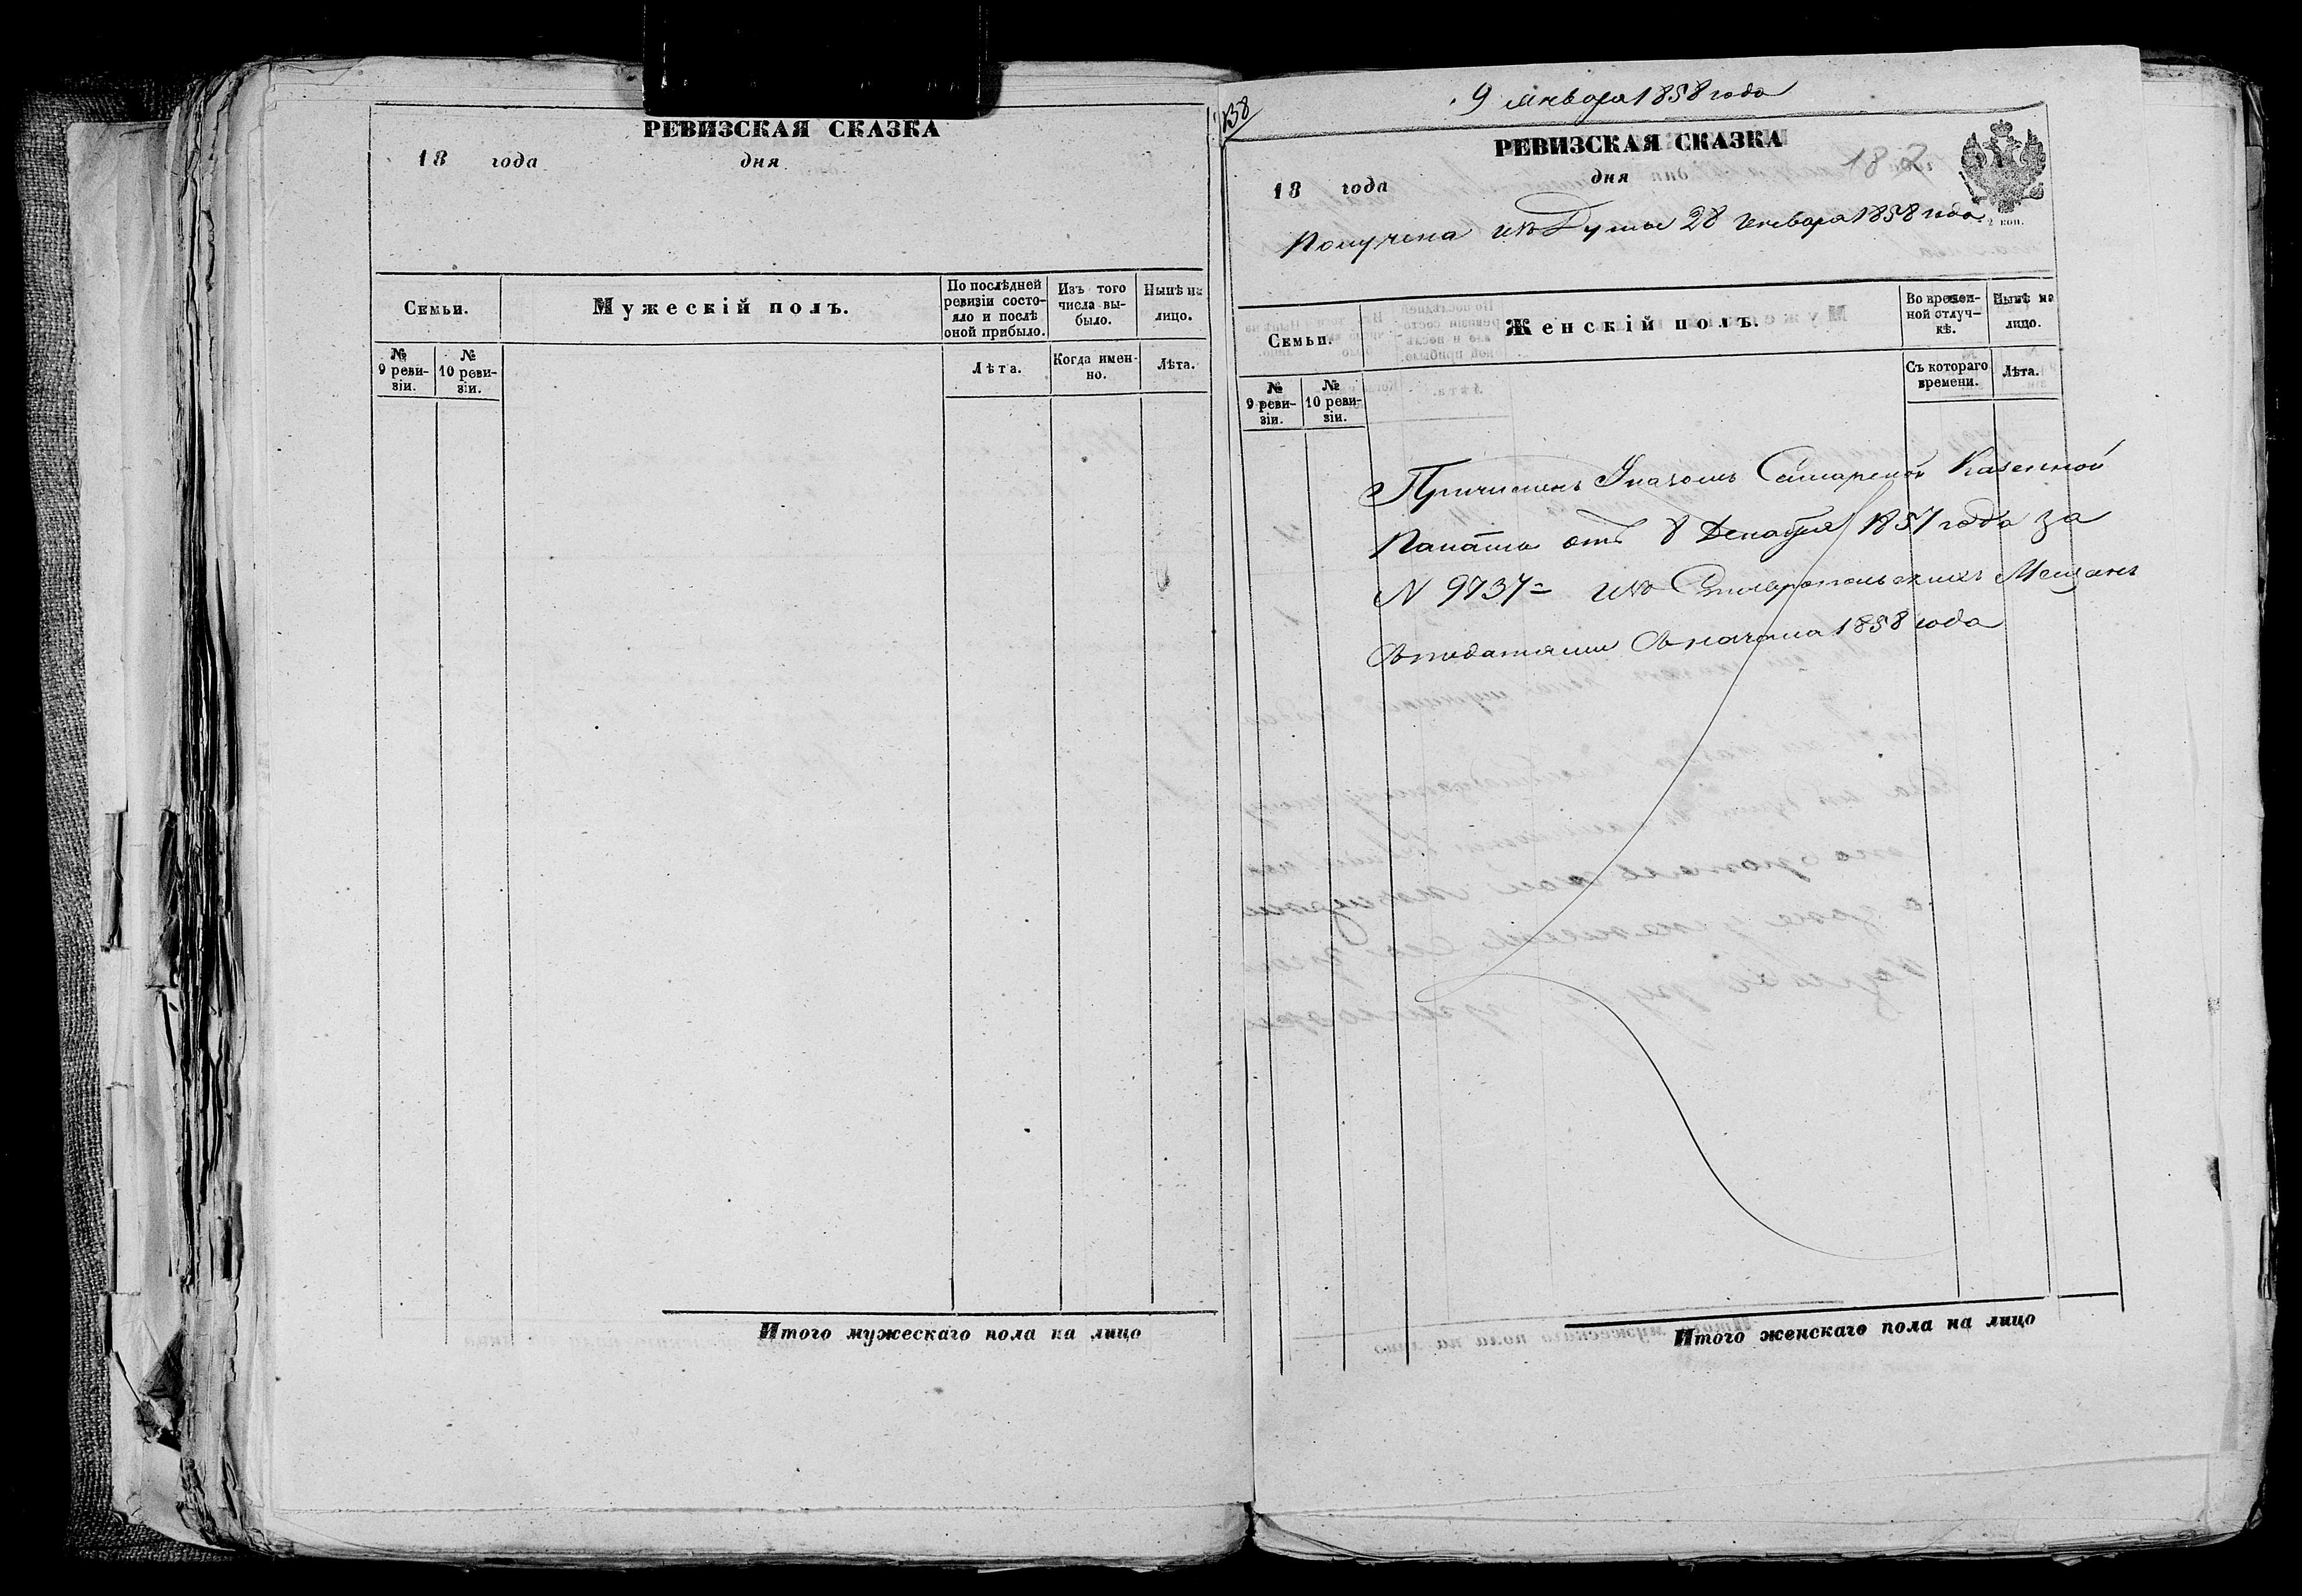 РЕВИЗСКАЯ СКАЗКА
18 года дня
Семьи.
Мужескій полъ.
По послѣдней ревизіи состояло и послѣ оной прибыло.
Изъ того числа выбыло.
Нынѣ на лицо.
№ 9 ревизіи.
№ 10 ревизіи.
Лѣта.
Когда именно.
Лѣта.
Итого мужескаго пола на лицо
138
9 Января 1858 года
РЕВИЗСКАЯ СКАЗКА
182
18 года дня
2 коп.
Получена изъ Думы 28 Генваря 1858 года
Семьи.
Женскій полъ.
Во временной отлучкѣ.
Нынѣ на лицо.
№ 9 ревизіи.
№ 10 ревизіи.
Съ котораго времени.
Лѣта.
Причисленъ Указомъ Самарской Казенной
Палаты отъ 8 Декабря 1857 года за
N 9737 = изъ Ставропольскихъ Мещанъ
Съ податями Съ начала 1858 года
Итого женскаго пола на лицо